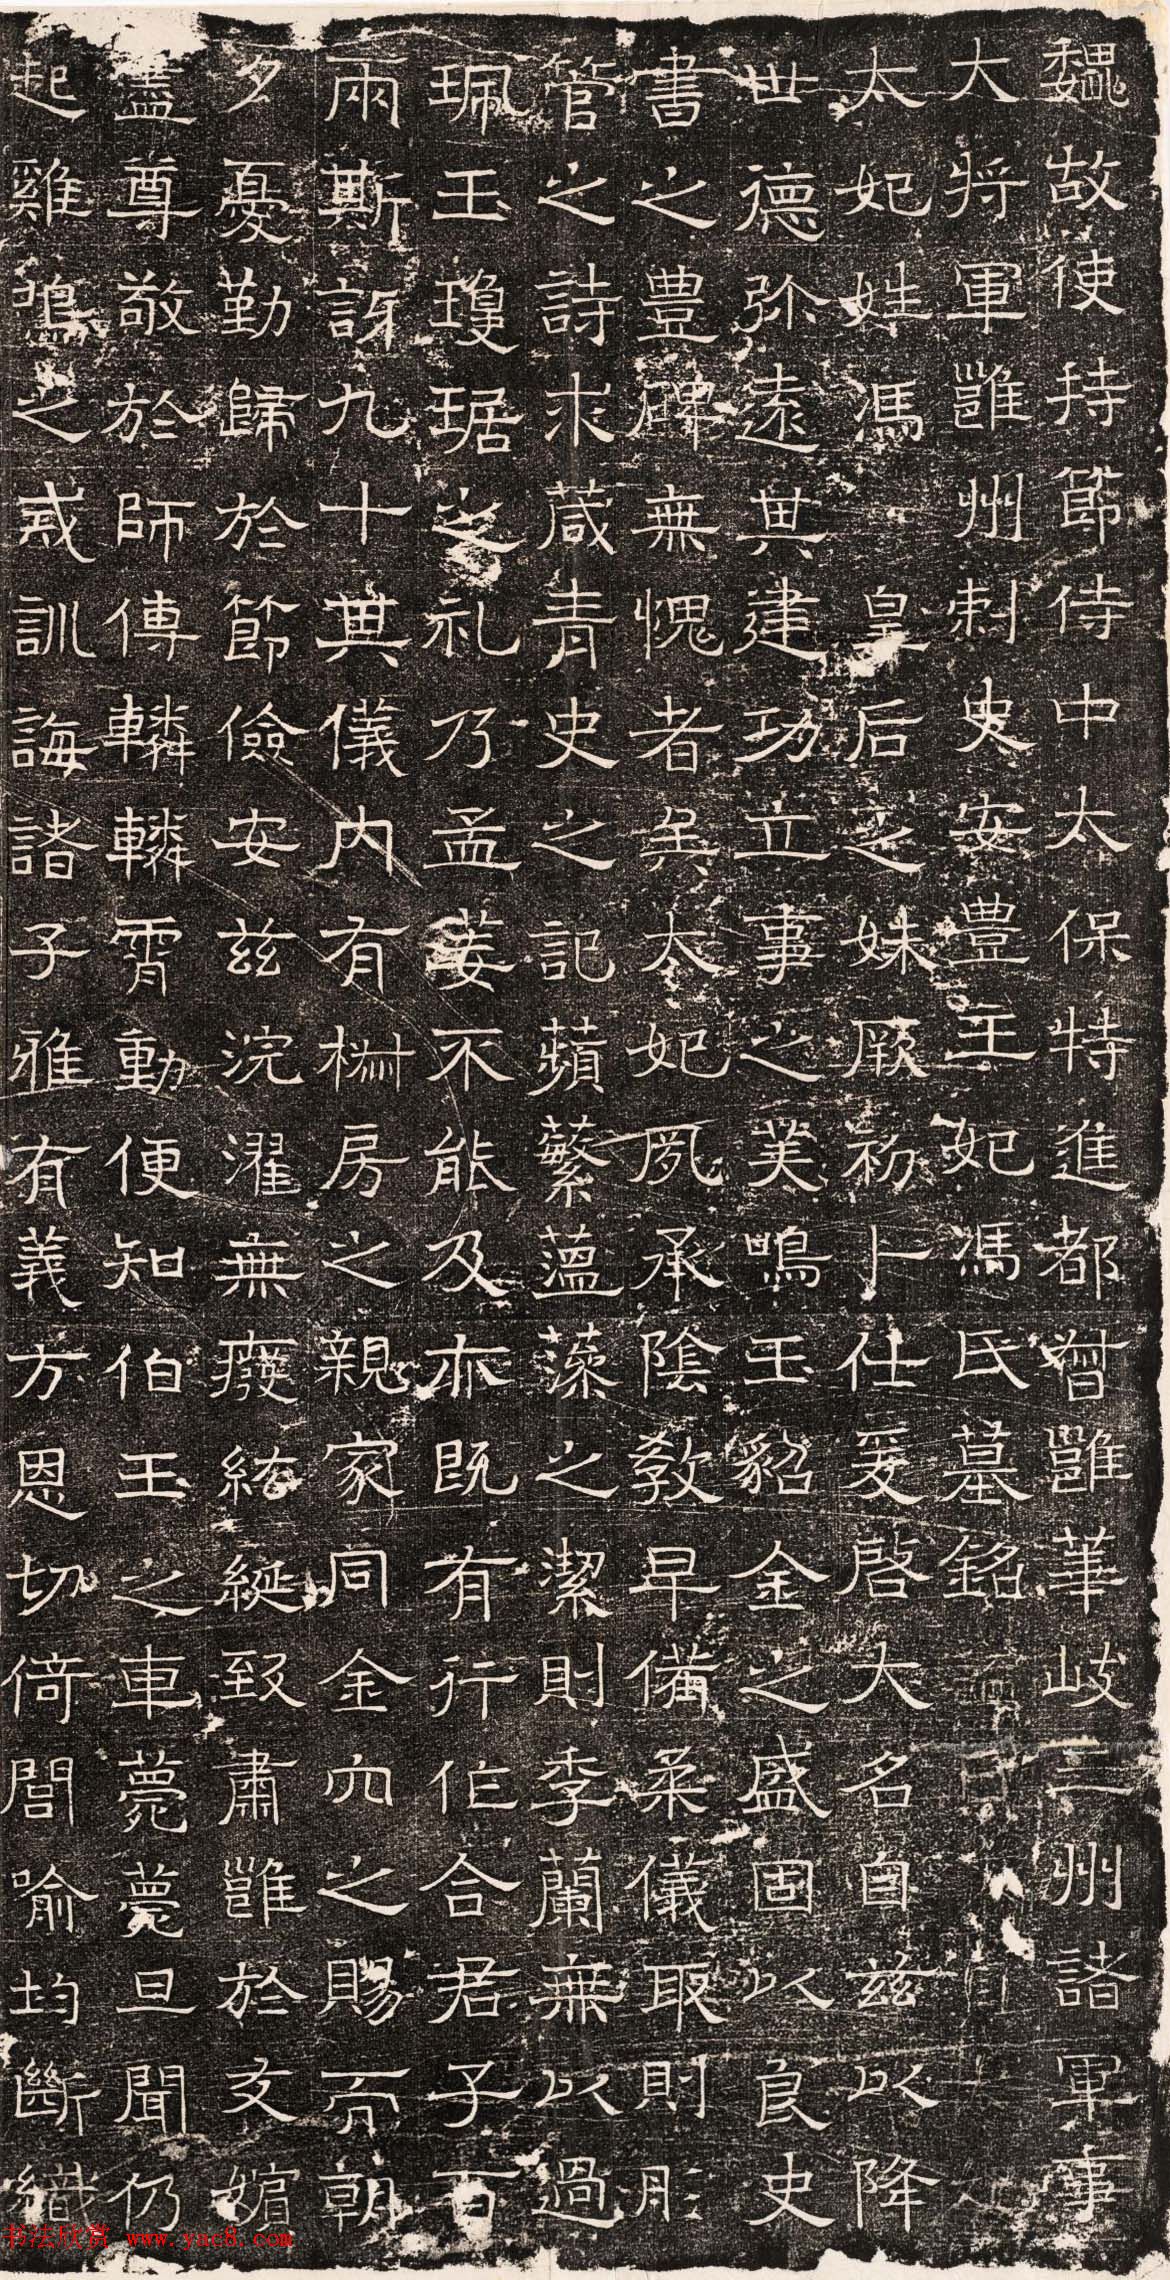 魏故使持節侍中太保特進都督雝華岐三州諸軍事
大將軍雝州刺史安豐王妃馮氏墓銘
太妃姓馮皇后之妹厥初卜仕爰啓大名自茲以降
世德弥遠其建功立事之美鳴玉貂金之盛固以良史
書之豊碑無愧者矣太妃夙承陰教早備柔儀取則彤
管之詩求箴青史之記蘋蘩薀藻之潔則季蘭無以過
珮玉瓊琚之礼乃孟姜不能及亦既有行作合君子百
兩斯訝九十其儀内有楙房之親家同金穴之賜而朝
夕憂勤歸於節儉安茲浣濯無廢紘綖致肅雝於友嬪
盡尊敬於師傅轔轔霄動便知伯王之車薨薨旦聞仍
起雞鳴之戒訓誨諸子雅有義方恩切倚閭喻均斷織
书法欣赏 www.yac8.com